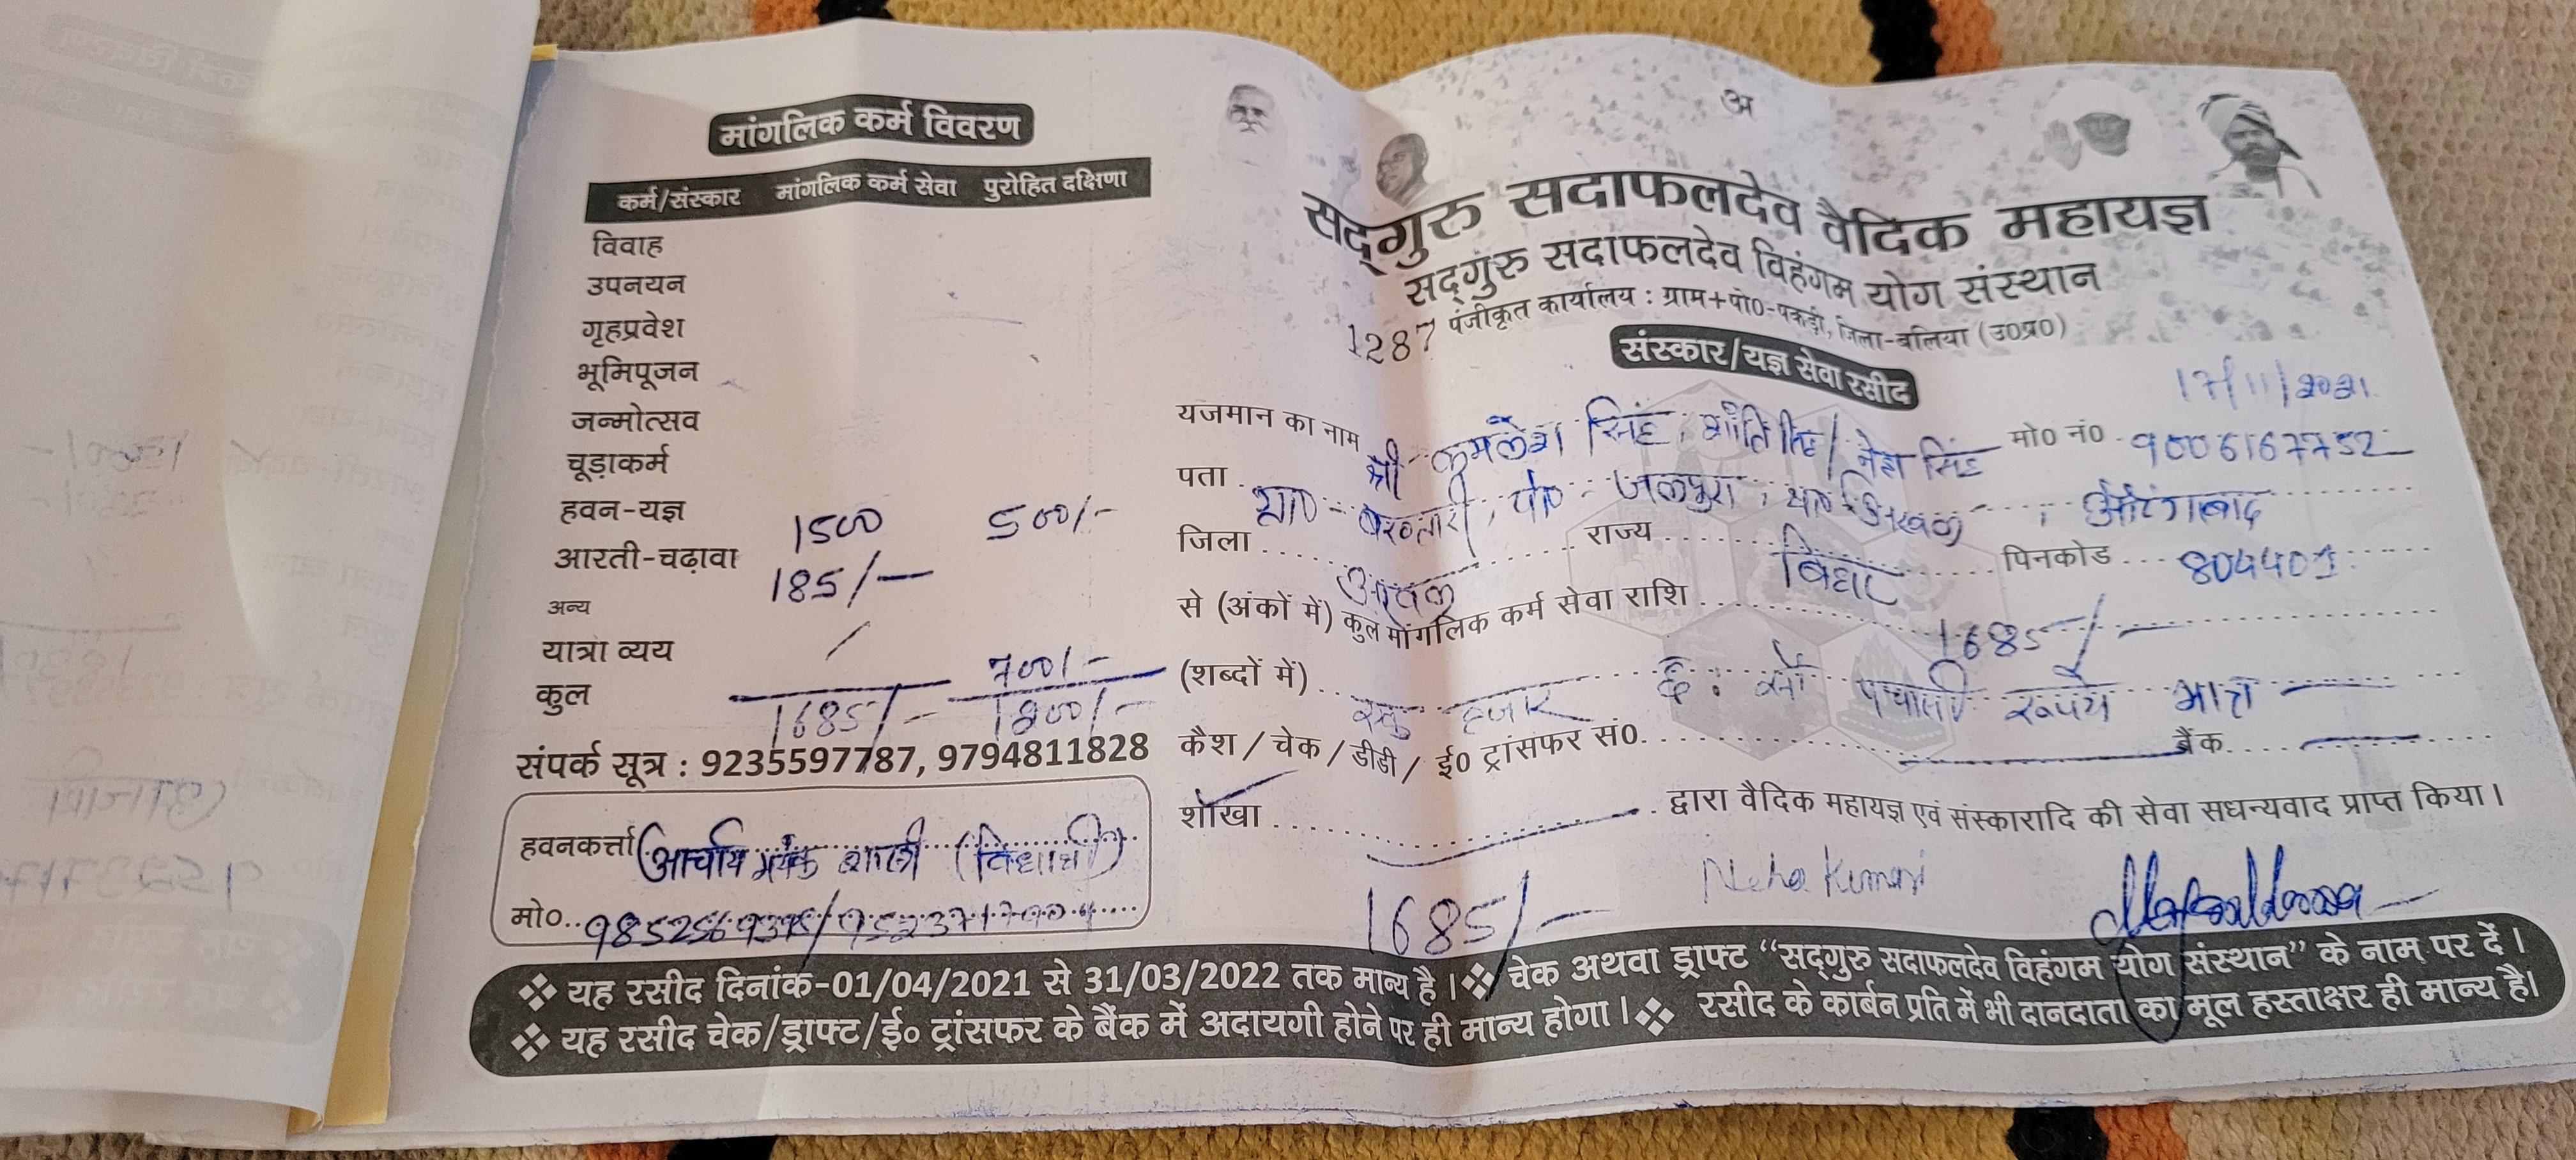 मांगलिक कर्म विवरण
कर्म/संस्कार मांगलिक कर्म सेवा पुरोहित दक्षिणा
विवाह
उपनयन
गृहप्रवेश
भूमिपूजन
जन्मोत्सव
चूड़ाकर्म
हवन-यज्ञ 1500 500/-
आरती-चढ़ावा 185/-
अन्य
यात्रा व्यय 700/-
कुल 1685/- 1200/-
संपर्क सूत्र : 9235597787, 9794811828
हवनकर्त्ता आचार्य शास्त्री
मो०
अ
सद्‌गुरु सदाफलदेव वैदिक महायज्ञ
सद्‌गुरु सदाफलदेव विहंगम योग संस्थान
पंजीकृत कार्यालय : ग्राम+पो०-पकड़ी, जिला-बलिया (उ०प्र०)
1287
संस्कार/यज्ञ सेवा रसीद
17/11/2021
यजमान का नाम श्री कमलेश सिंह, मो० नं० 9006167752
पता औरंगाबाद
जिला राज्य बिहार पिनकोड 804401
से (अंकों में) कुल मांगलिक कर्म सेवा राशि 1685/-
(शब्दों में) एक हजार छ: सौ पचासी रूपये मात्र
कैश / चेक / डीडी / ई० ट्रांसफर सं०. बैंक
शाखा द्वारा वैदिक महायज्ञ एवं संस्कारादि की सेवा सधन्यवाद प्राप्त किया।
1685/- Neha Kumari
❖ यह रसीद दिनांक-01/04/2021 से 31/03/2022 तक मान्य है। ❖ चेक अथवा ड्राफ्ट “सद्‌गुरु सदाफलदेव विहंगम योग संस्थान” के नाम पर दें।
❖ यह रसीद चेक/ड्राफ्ट/ई० ट्रांसफर के बैंक में अदायगी होने पर ही मान्य होगा। ❖ रसीद के कार्बन प्रति में भी दानदाता का मूल हस्ताक्षर ही मान्य है।